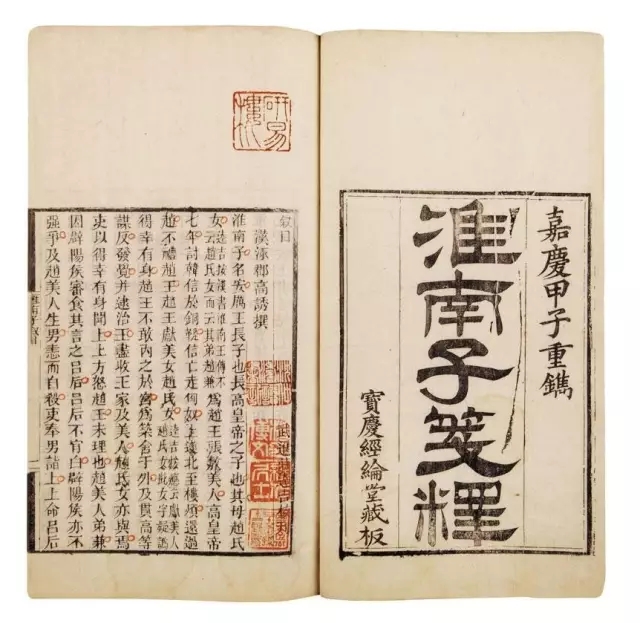 嘉慶甲子重鐫
淮南子箋釋
寶慶經綸堂藏板
研易樓
叙目
漢涿郡高誘撰
淮南子名安厲王長子也長高皇帝之子也其母趙氏
女逵吉按漢書淮南王傳不云趙氏女而云其弟趙兼為趙王張敖美人高皇帝
七年討韓信於銅鞮信亡走匈奴上遂北至樓煩還過
趙不禮趙王趙王獻美女趙氏女
得幸有身趙王不敢內之於宮為築舍于外及貫高等
謀反發覺并逮治王盡收王家及美人趙氏女亦與焉
吏以得幸有身聞上上方怒趙王未理也趙美人弟兼
因辟陽侯審食其言之呂后呂后不肯白辟陽侯亦不
強爭及趙美人生男恚而自殺吏奉男詣上上命呂后